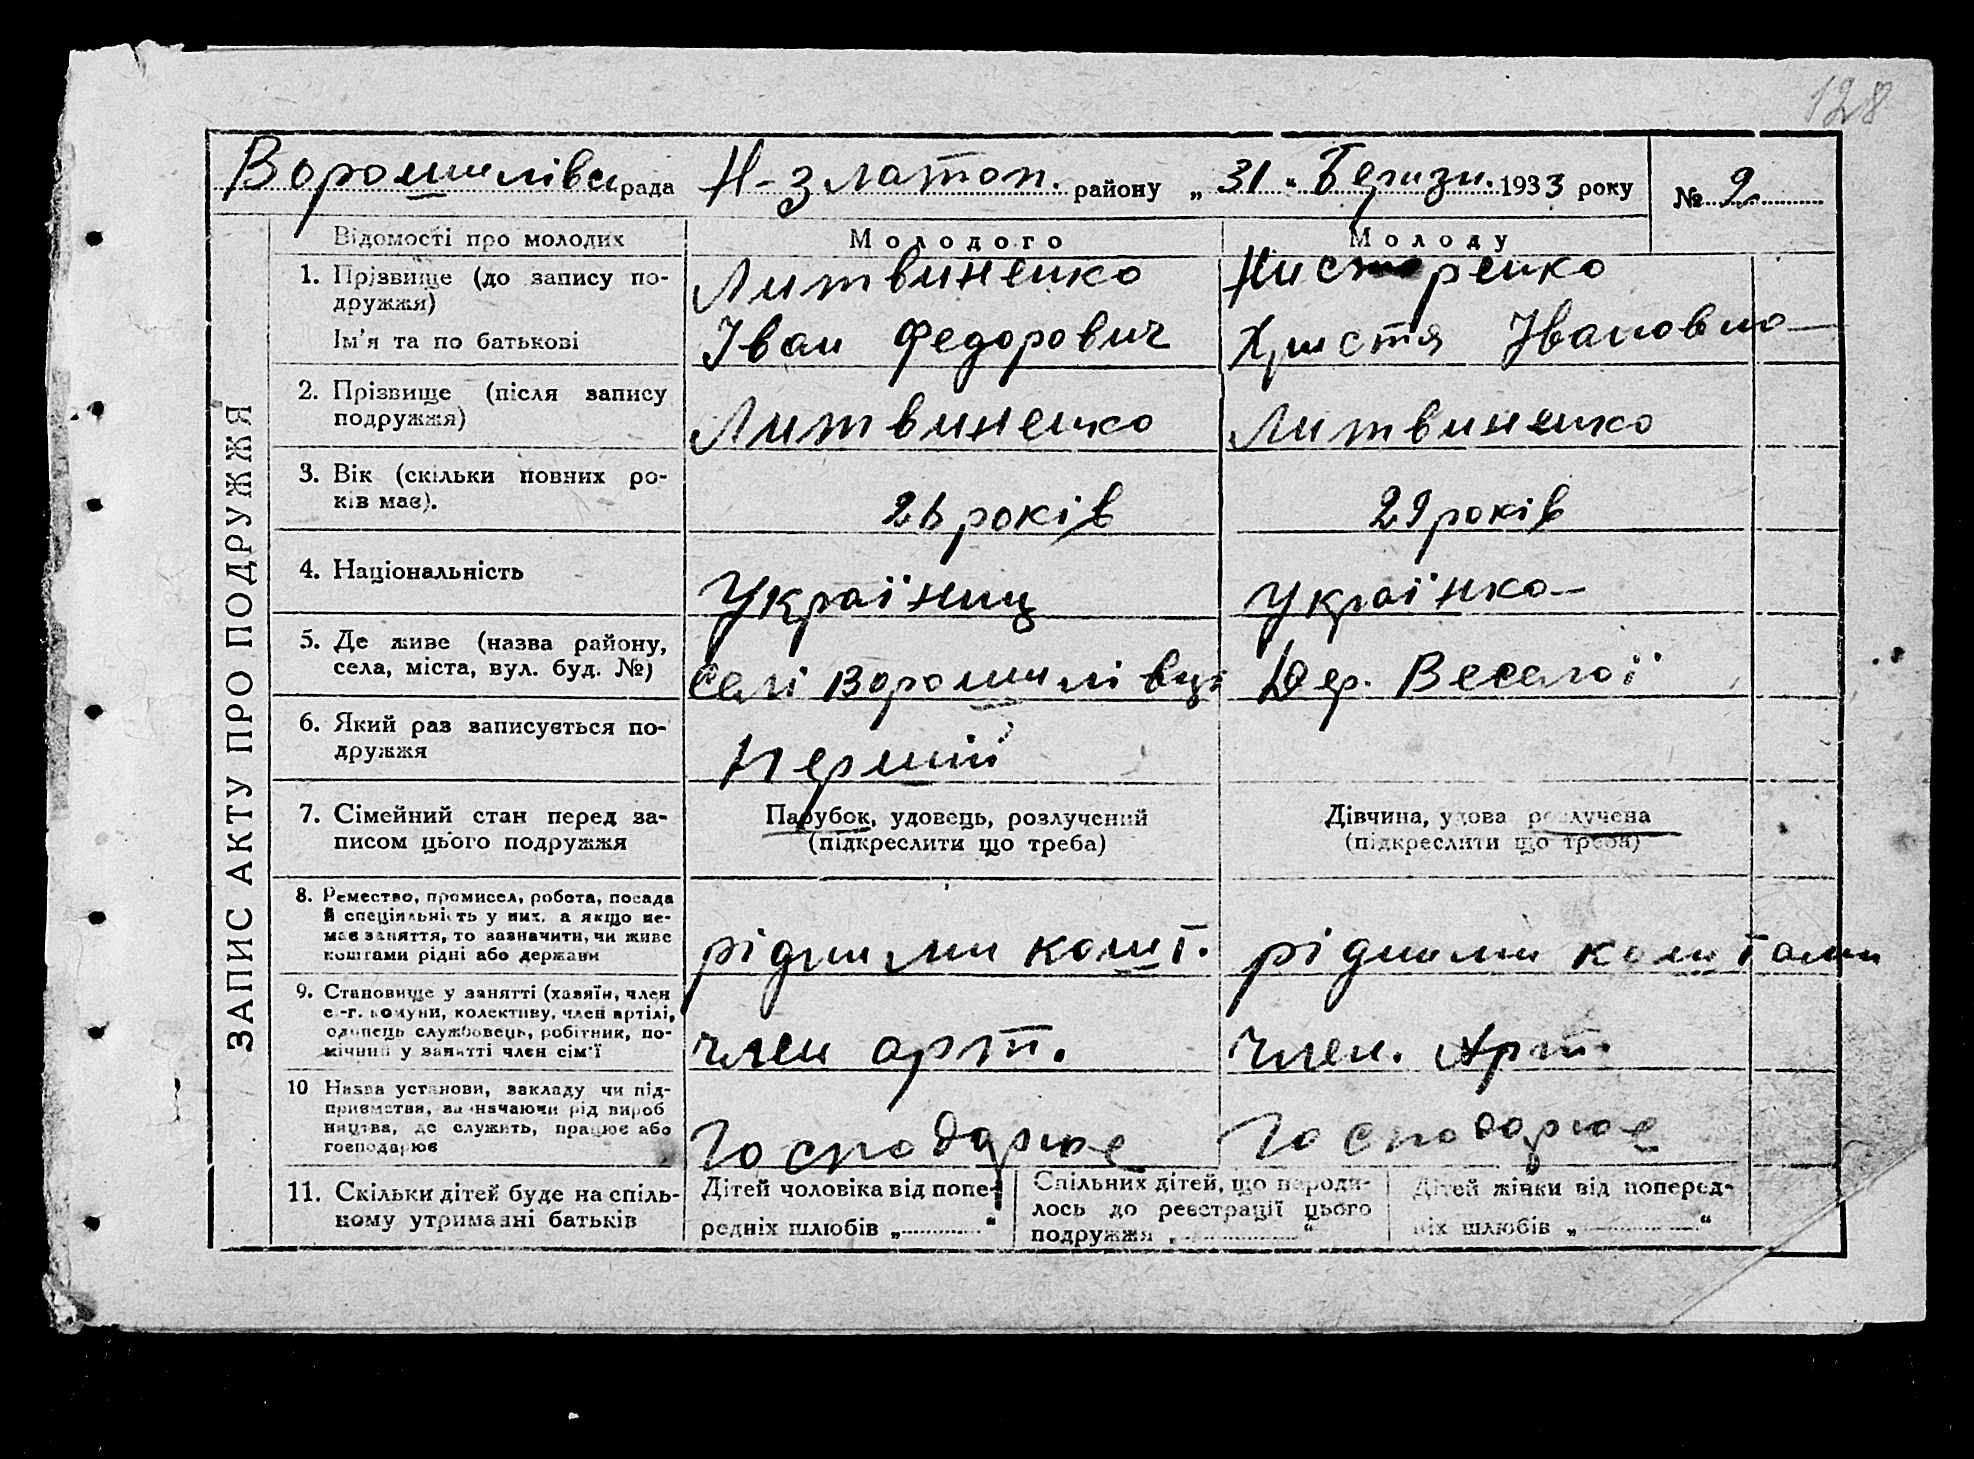 128
Ворошилівск рада Н-златоп. району „31" Березн. 1933 року № 2
ЗАПИС АКТУ ПРО ПОДРУЖЖЯ
Відомості про молодих
Молодого
Молоду
1. Прізвище (до запису по-
дружжя)
Ім'я та по батькові
Литвиненко
Іван Федорович
Нистеренко
Христя Івановна
2. Прізвище (після запису
подружжя)
Литвиненко
Литвиненко
3. Вік (скільки повних ро-
ків має).
26 років
29 років
4. Національність
Україниц
Українка
5. Де живе (назва району,
села, міста, вул. буд. №)
Селі Ворошилівці
Дер. Веселої
6. Який раз записується по-
дружжя
Перший
7. Сімейний стан перед за-
писом цього подружжя
Парубок, удовець, розлучений
(підкреслити що треба)
Дівчина, удова розлучена
(підкреслити що треба)
8. Ремество, промисел, робота, посада
й спеціяльність у них, а якщо не-
має заняття, то зазначити, чи живе
коштами рідні або держави
рідними кошт.
рідними коштами
9. Становище у занятті (хазяїн, член
с.-г. комуни, колективу, член артілі,
одинець службовець, робітник, по-
мічний у занятті член сім'ї
член арт.
член. Арт.
10 Назва установи, закладу чи під-
приємства, зазначаючи рід вироб
ництва, де служить, працює або
господарює
Господарює
Господарює
11. Скільки дітей буде на спіль-
ному утриманні батьків
Дітей чоловіка від попе-
редніх шлюбів „ "
Спільних дітей, що народи-
лось до реєстрації цього
подружжя „ "
Дітей жінки від поперед-
ніх шлюбів „ "